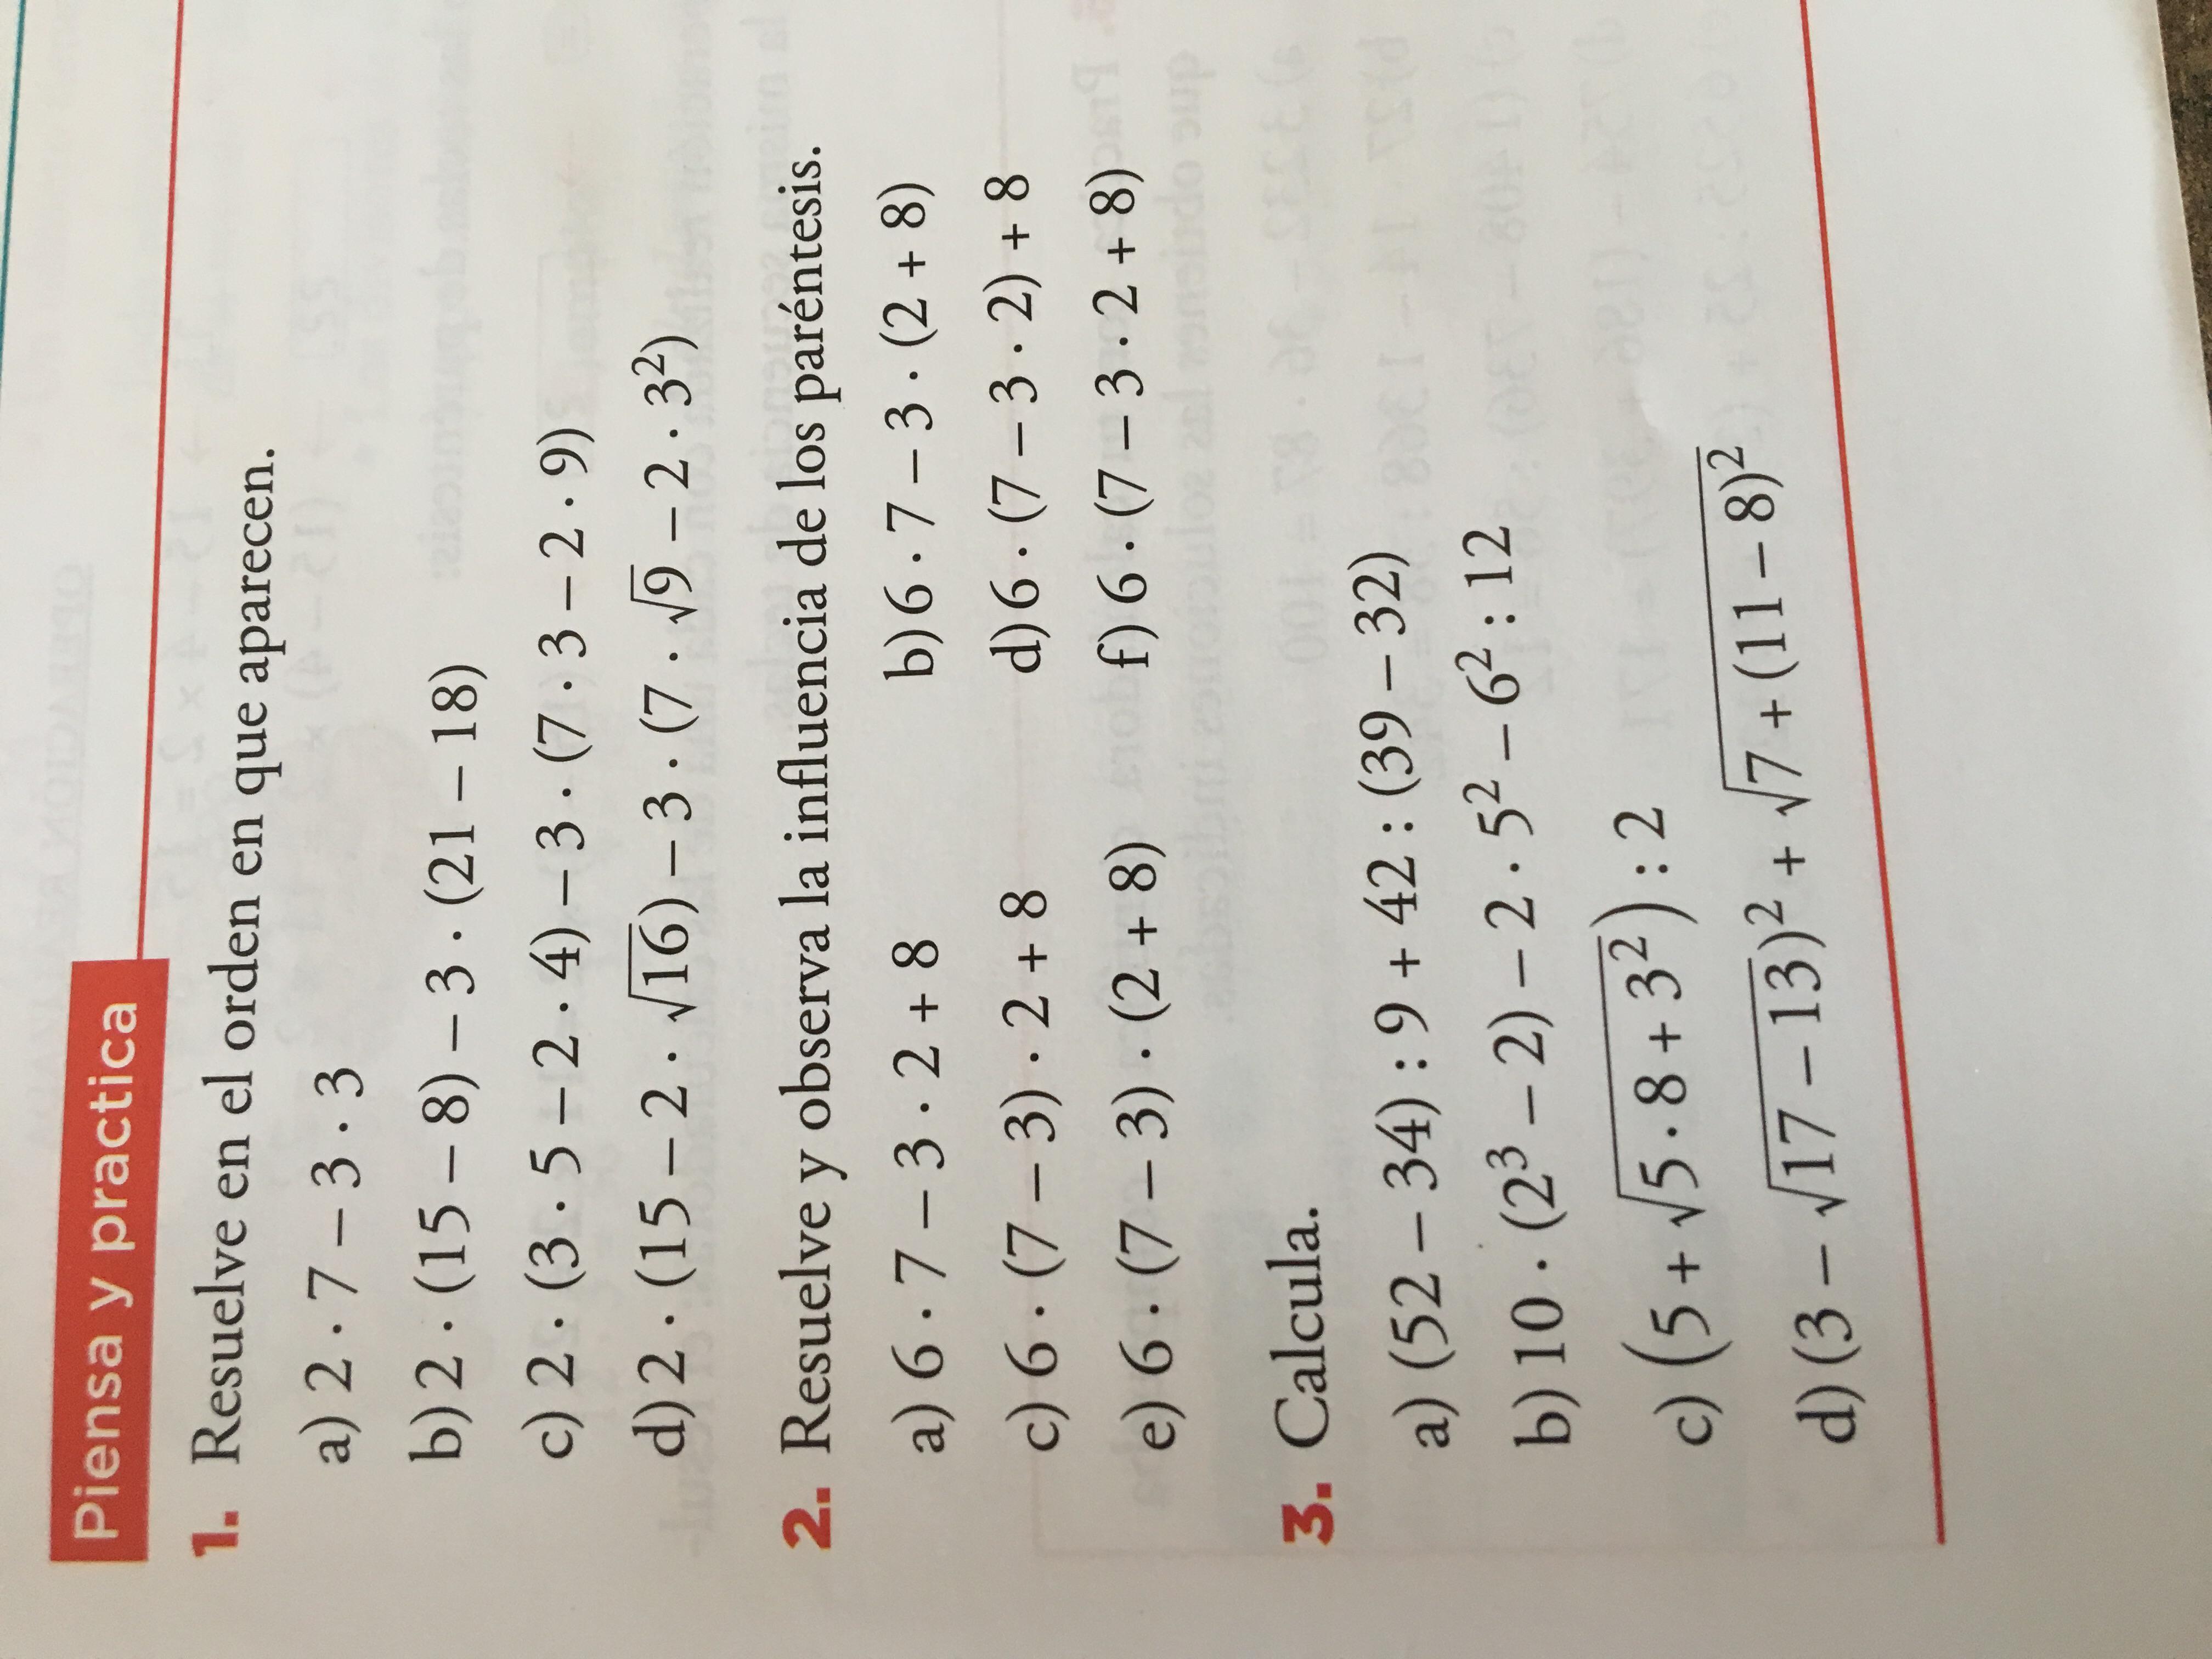 Piensa y practica
1. Resuelve en el orden en que aparecen.
a) 2 · 7 – 3 · 3
b) 2 · (15 – 8) – 3 · (21 – 18)
c) 2 · (3 · 5 – 2 · 4) – 3 · (7 · 3 – 2 · 9)
d) 2 · (15 – 2 · √16) – 3 · (7 · √9 – 2 · 3²)
2. Resuelve y observa la influencia de los paréntesis.
a) 6 · 7 – 3 · 2 + 8 b) 6 · 7 – 3 · (2 + 8)
c) 6 · (7 – 3) · 2 + 8 d) 6 · (7 – 3 · 2) + 8
e) 6 · (7 – 3) · (2 + 8) f) 6 · (7 – 3 · 2 + 8)
3. Calcula.
a) (52 – 34) : 9 + 42 : (39 – 32)
b) 10 · (2³ – 2) – 2 · 5² – 6² : 12
c) (5 + √(5 · 8 + 3²)) : 2
d) (3 – √(17 – 13))² + √(7 + (11 – 8)²)